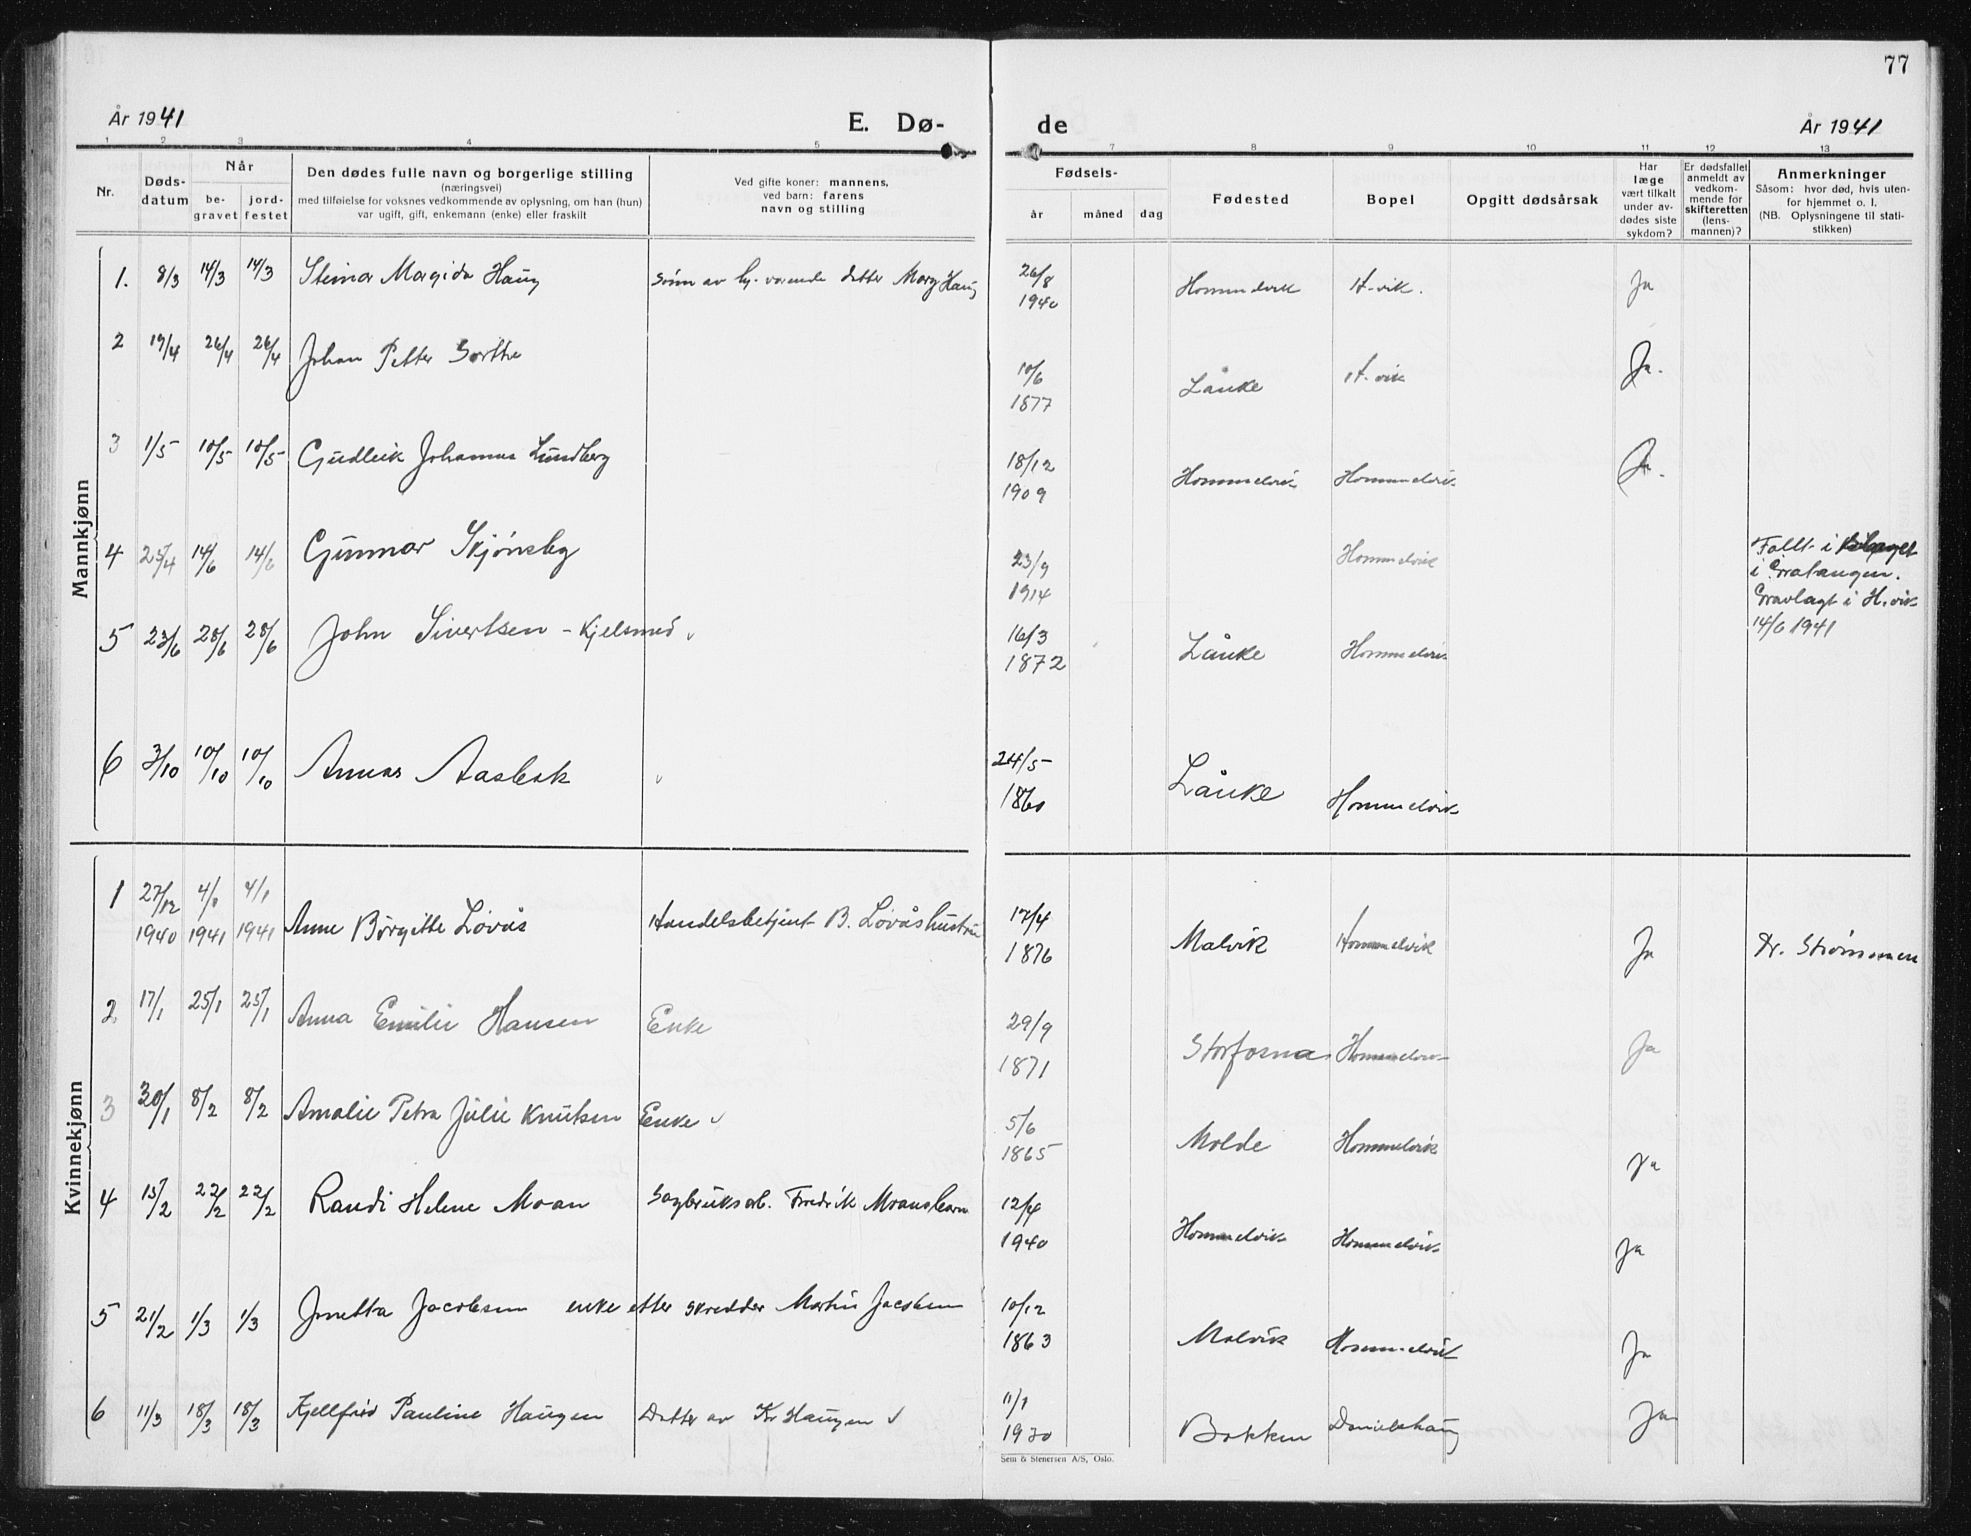 77
År 1941
E. Dø-
de
År 1941
1 2 3 4 5
7 8 9 10 11 12 13
Nr.
Døds-
datum
Når
be-
gravet
jord-
festet
Den dødes fulle navn og borgerlige stilling
(næringsvei)
med tilføielse for voksnes vedkommende av oplysning, om han (hun)
var ugift, gift, enkemann (enke) eller fraskilt
Ved gifte koner: mannens,
ved barn: farens
navn og stilling
Fødsels-
år måned dag
Fødested
Bopel
Opgitt dødsårsak
Har
læge
vært tilkalt
under av-
dødes siste
sykdom?
Er dødsfallet
anmeldt av
vedkom-
mende for
skifteretten
(lens-
mannen)?
Anmerkninger
Såsom: hvor død, hvis uten-
for hjemmet o. l.
(NB. Oplysningene til stati-
stikken)
Mannkjønn
1. 8/3 14/3 14/3 Steinar Haug Sønn av datter Mary Haug 26/8
1940 Hommelvik H-vik. Ja
2 19/4 26/4 26/4 Johan Petter 10/6
1877 Lånke H.vik Ja.
3 1/5 10/5 10/5 Gudleik Johannes Lundberg 18/12
1909 Hommelvik Hommelvik Ja.
4 25/4 14/6 14/6 Gunnar Skjønsby 23/9
1914 Hommelvik
Fallt i
i Gratangen.
Gravlagt i H.vik
14/6 1941
5 23/6 28/6 28/6 John Sivertsen - Kjelsmed 16/3
1872 Lånke Hommelvik
6 3/10 10/10 10/10 Aasbak 24/5
1860 Lånke Hommelvik
Kvinnekjønn
1 27/12
1940 4/1
1941 4/1
1941 Anne Børgitte Løvås Handelsbetjent B. Løvås hustru 17/4
1876 Malvik Hommelvik Ja Dr. Strømmen
2 17/1 25/1 25/1 Anna Emilie Hansen Enke 29/9
1871 Storfosna Hommelvik Ja
3 30/1 8/2 8/2 Amalie Petra Julie Knutsen Enke 5/6
1865 Molde Hommelvik Ja
4 15/2 22/2 22/2 Randi Helene Moan Sagbruksarb. Fredrik Moans barn 12/4
1940 Hommelvik Hommelvik Ja
5 21/2 1/3 1/3 Jonetta Jacobsen enke etter skredder Martin Jacobsen 10/12
1863 Malvik Hommelvik Ja
6 11/3 18/3 18/3 Kjellfrid Pauline Haugen Datter av Kr Haugen 11/1
1930 Bakken Danielshaug Ja
Sem & Stenersen A/S, Oslo.